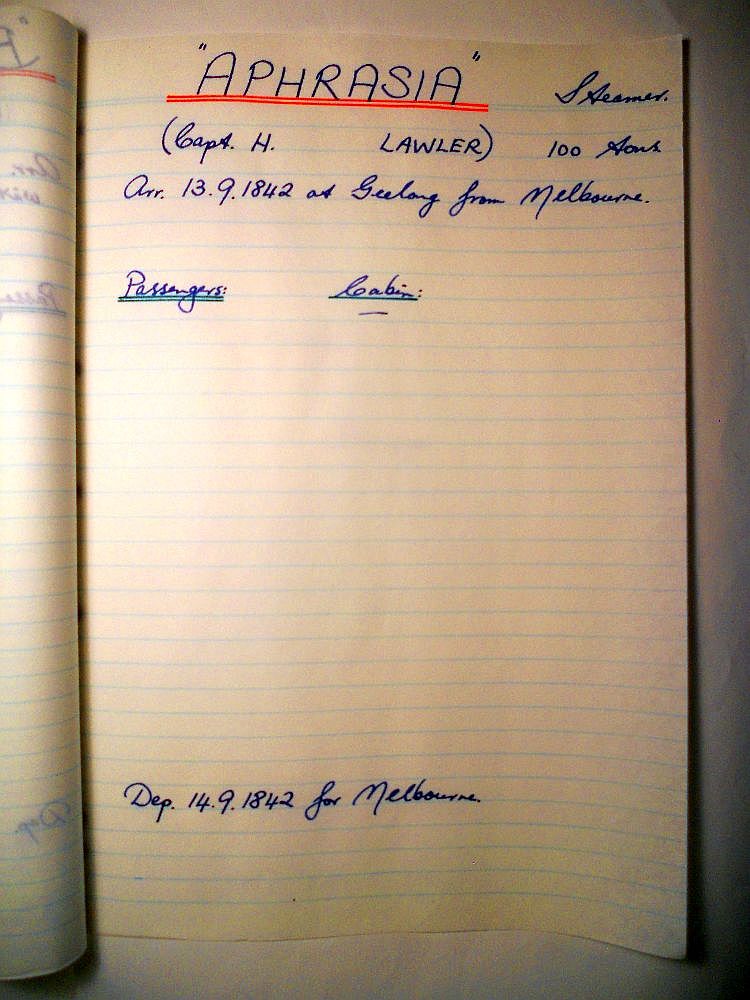 "APHRASIA" Steamer.
(Capt. H. LAWLER) 100 Tons
Arr. 13.9.1842 at Geelong from Melbourne.
Passengers: Cabin:
—
Dep. 14.9.1842 for Melbourne.